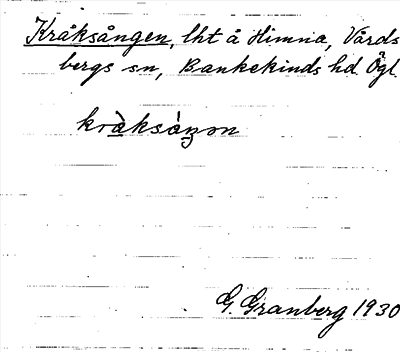 Kråksången, lht å Himna, Vårds
bergs sn, Bankekinds hd. Ögl.
kràksáŋon
G. Granberg 1930